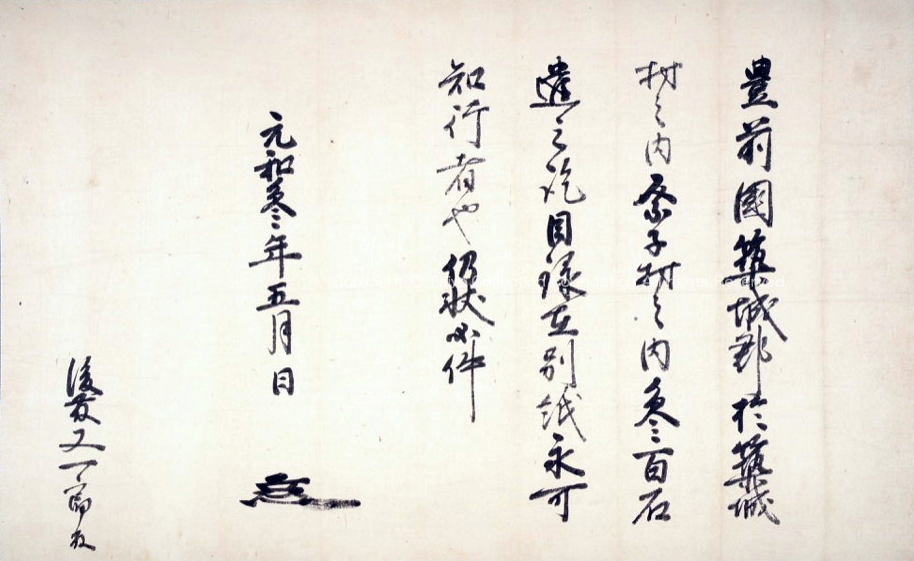 豊前國築城郡於築城
村之内奈子村之内参百石
遣之訖目録在別紙永可
知行者也仍状如件
元和参年五月日
後藤又一郎殿